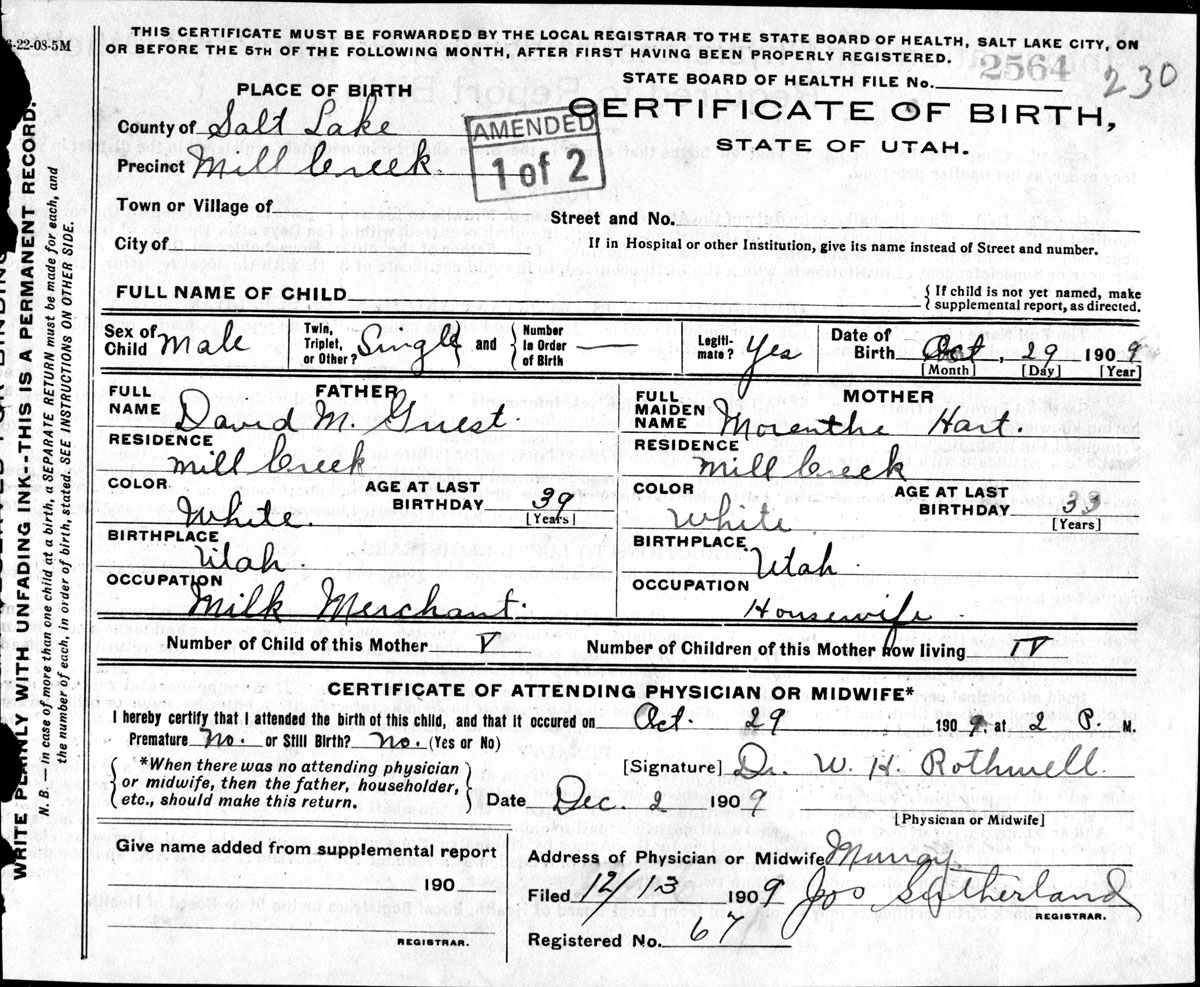 6-22-08-5M
THIS CERTIFICATE MUST BE FORWARDED BY THE LOCAL REGISTRAR TO THE STATE BOARD OF HEALTH, SALT LAKE CITY, ON
OR BEFORE THE 5TH OF THE FOLLOWING MONTH, AFTER FIRST HAVING BEEN PROPERLY REGISTERED.
STATE BOARD OF HEALTH FILE No. 2564 230
PLACE OF BIRTH
CERTIFICATE OF BIRTH,
STATE OF UTAH.
AMENDED
1 of 2
County of Salt Lake
Precinct Mill Creek.
Town or Village of
Street and No.
City of
If in Hospital or other Institution, give its name instead of Street and number.
FULL NAME OF CHILD
{ If child is not yet named, make
supplemental report, as directed.
Sex of Child Male
Twin, Triplet, or Other? Single } and { Number in Order of Birth —
Legiti-mate? Yes
Date of Birth Oct, 29 1909
[Month] [Day] [Year]
FATHER
FULL NAME David M. Guest.
RESIDENCE
Mill Creek
COLOR White.
AGE AT LAST BIRTHDAY 39
[Years]
BIRTHPLACE
Utah.
OCCUPATION
Milk Merchant.
MOTHER
FULL MAIDEN NAME Morenthe Hart.
RESIDENCE
Mill Creek
COLOR White
AGE AT LAST BIRTHDAY 33
[Years]
BIRTHPLACE
Utah.
OCCUPATION
Housewife
Number of Child of this Mother V
Number of Children of this Mother now living IV
CERTIFICATE OF ATTENDING PHYSICIAN OR MIDWIFE*
I hereby certify that I attended the birth of this child, and that it occured on Oct. 29 1909, at 2 P. M.
Premature No. or Still Birth? No. (Yes or No)
{ *When there was no attending physician
or midwife, then the father, householder,
etc., should make this return. }
[Signature] Dr. W. H. Rothwell.
Date Dec. 2 1909
[Physician or Midwife]
Give name added from supplemental report
190
REGISTRAR.
Address of Physician or Midwife Murray
Filed 12/13 1909 Joo Sutherland
REGISTRAR.
Registered No. 67
WRITE PLAINLY WITH UNFADING INK--THIS IS A PERMANENT RECORD.
N. B. — In case of more than one child at a birth, a SEPARATE RETURN must be made for each, and
the number of each, in order of birth, stated. SEE INSTRUCTIONS ON OTHER SIDE.